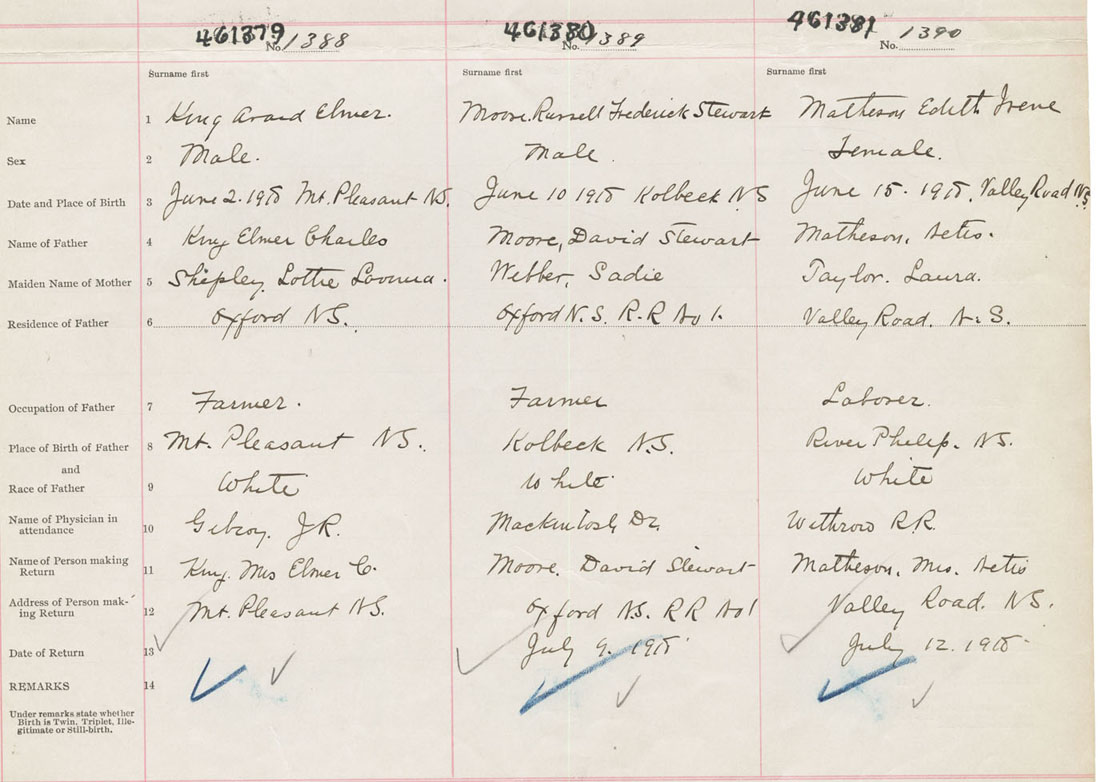 461379 461380 461381
No. 1388 No. 1389 No. 1390
Surname first Surname first Surname first
Name 1 King Elmer. Moore, Russell Frederick Stewart Matheson Edith Irene
Sex 2 Male. Male Female.
Date and Place of Birth 3 June 2. 1915 Mt. Pleasant NS. June 10 1915 Kolbeck NS June 15. 1915. Valley Road NS
Name of Father 4 King Elmer Charles Moore, David Stewart Matheson,
Maiden Name of Mother 5 Shipley, Lottie Webber, Sadie Taylor. Laura.
Residence of Father 6 Oxford NS. Oxford N.S. R.R No 1. Valley Road. N.S.
Occupation of Father 7 Farmer. Farmer Laborer.
Place of Birth of Father 8 Mt. Pleasant NS. Kolbeck N.S. River Philip. NS.
and
Race of Father 9 White White White
Name of Physician in
attendance 10 J R. Mackintosh Dr. Withrow R.R.
Name of Person making
Return 11 King. Mrs Elmer C. Moore, David Stewart Matheson, Mrs.
Address of Person mak-
ing Return 12 Mt. Pleasant NS. Oxford N.S. RR No 1 Valley Road. NS.
Date of Return 13 July 9. 1915 July 12. 1915
REMARKS 14
Under remarks state whether
Birth is Twin, Triplet, Ille-
gitimate or Still-birth.